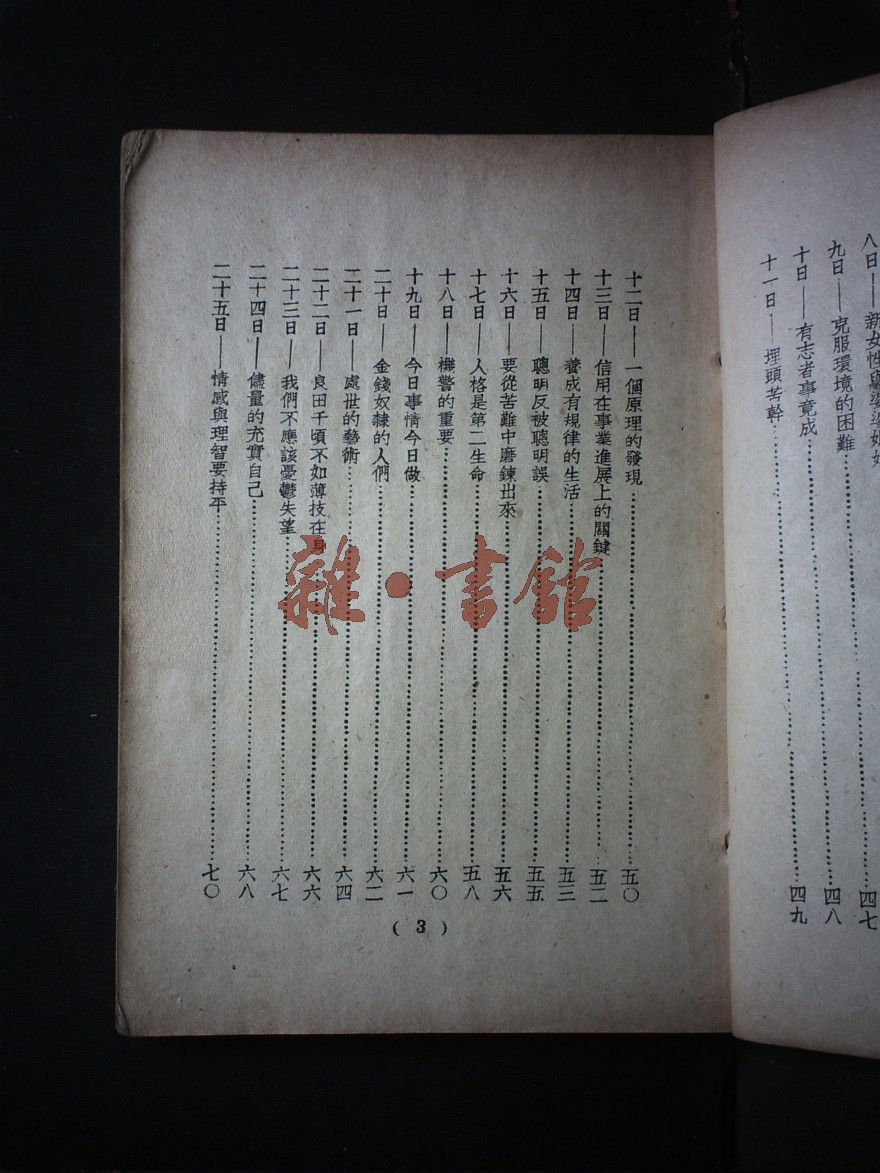 八日——新女性與婆婆……四七
九日——克服環境的困難……四八
十日——有志者事竟成
十一日——埋頭苦幹……四九
十二日——一個原理的發現……五〇
十三日——信用在事業進展上的關鍵……五二
十四日——養成有規律的生活……五三
十五日——聰明反被聰明誤……五五
十六日——要從苦難中磨鍊出來……五六
十七日——人格是第二生命……五八
十八日——機警的重要……六〇
十九日——今日事情今日做……六一
二十日——金錢奴隸的人們……六二
二十一日——處世的藝術……六四
二十二日——良田千頃不如薄技在身……六六
二十三日——我們不應該憂鬱失望……六七
二十四日——儘量的充實自己……六八
二十五日——情感與理智要持平……七〇
(3)
雜·書館